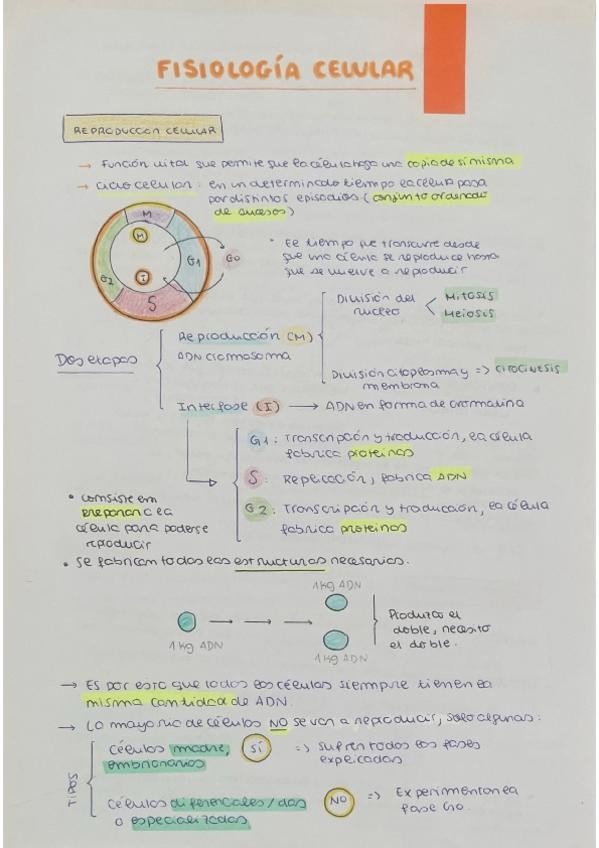 FISIOLOGÍA CELULAR
REPRODUCCION CELULAR
→ Función vital que permite que la célula haga una copia de si misma
→ Ciclo celular: en un determinado tiempo la célula pasa
por distintos episodios (conjunto ordenado
de sucesos)
M
M
G1
G0
I
G2
S
• Ee tiempo que transcurre desde
que una célula se reproduce hasta
que se vuelve a reproducir
Dos etapas
Reproducción (M)
ADN cromosoma
División del
nucleo
Mitosis
Meiosis
División citoplasma y => CITOCINESIS
membrana
Interfase (I) → ADN en forma de cromatina
G1: Transcripción y traducción, la célula
fabrica proteinas
S: Replicación, fabrica ADN
G2: Transcripción y traducción, la célula
fabrica proteinas
• consiste em
preparar a la
célula para poderse
reproducir
• Se fabrican todas las estructuras necesarias.
1 kg ADN
→ → →
1 kg ADN
1 kg ADN
Produzco el
doble, necesito
el doble.
→ Es por esto que todas las células siempre tienen la
misma cantidad de ADN.
→ La mayoria de células NO se van a reproducir, solo algunas:
TIPOS
células madre,
embrionarias
SÍ
=> Sufren todas las fases
explicadas
células diferenciales/das
o especializadas
NO
=> Experimentan la
fase G0.